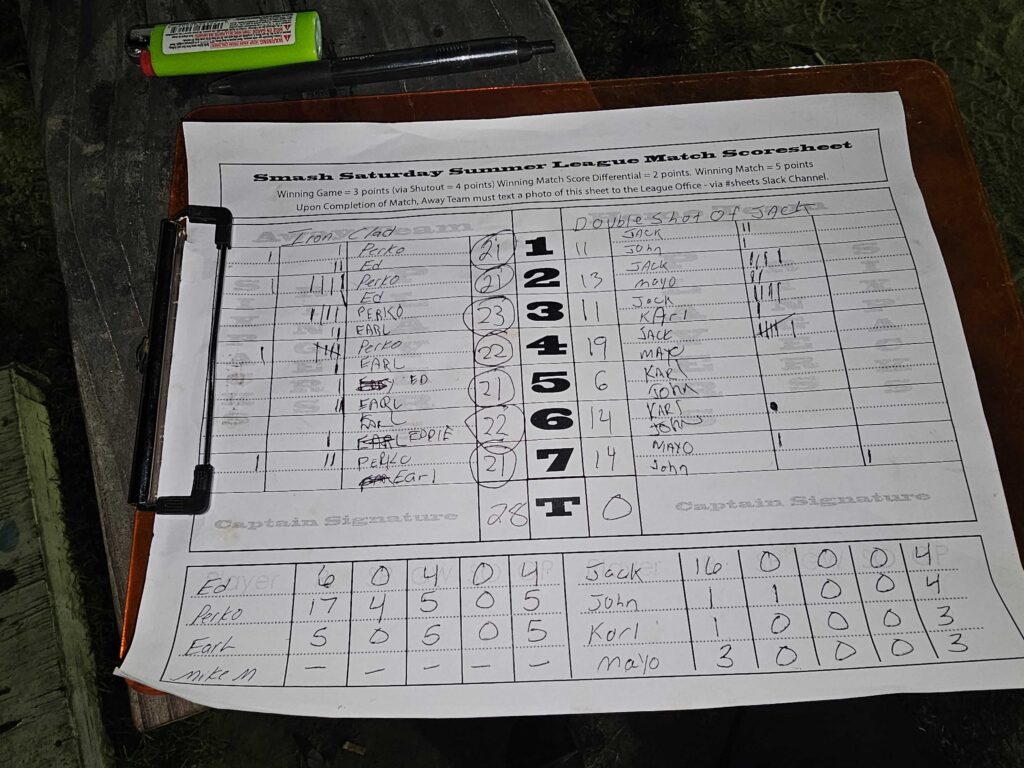 Smash Saturday Summer League Match Scoresheet
Winning Game = 3 points (via Shutout = 4 points) Winning Match Score Differential = 2 points. Winning Match = 5 points
Upon Completion of Match, Away Team must text a photo of this sheet to the League Office - via #sheets Slack Channel.
Away Team
Iron Clad
Double Shot Of JACK
Perko 21 1 11 JACK
Ed John
Perko 21 2 13 JACK
Ed Mayo
PERKO 23 3 11 Jack
EARL KArl
Perko 22 4 19 JACK
EARL
ED 21 5 6 KARl
EARL John
EARL 22 6 14 KARl
EDDIE John
PERKO 21 7 14 MAYO
EArl John
Captain Signature 28 T 0 Captain Signature
Ed 6 0 4 0 4 Jack 16 0 0 0 4
Perko 17 4 5 0 5 John 1 1 0 0 4
Earl 5 0 5 0 5 Karl 1 0 0 0 3
Mike M — — — — — Mayo 3 0 0 0 3